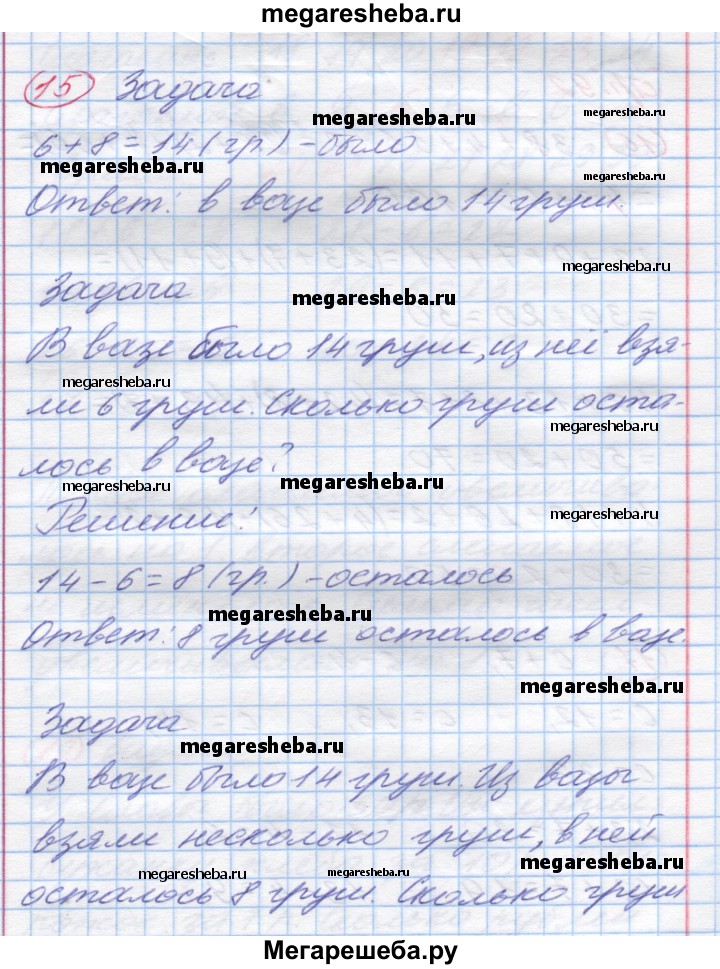 megaresheba.ru
15 Задача
megaresheba.ru
6+8=14(гр.) - было
megaresheba.ru
Ответ: в вазе было 14 груш.
megaresheba.ru
Задача
megaresheba.ru
В вазе было 14 груш, из неё взя-
megaresheba.ru
ли 6 груш. Сколько груш оста-
megaresheba.ru
лось в вазе?
megaresheba.ru
megaresheba.ru
Решение:
megaresheba.ru
14-6=8(гр.) - осталось
megaresheba.ru
Ответ: 8 груш осталось в вазе.
megaresheba.ru
Задача
megaresheba.ru
В вазе было 14 груш. Из вазы
взяли несколько груш, в ней
megaresheba.ru
megaresheba.ru
megaresheba.ru
осталось 8 груш. Сколько груш
Мегарешеба.ру